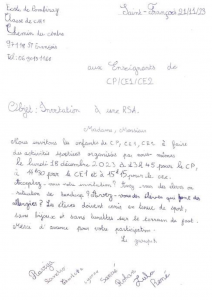 Ecole de Lombreuzy
Classe de CM1
Chemin du centre
97118 St François
Saint-François 21/11/23
aux Enseignants de
CP/CE1/CE2
Objet: Invitation à une RSA.
Madame, Monsieur
Nous invitons les enfants de CP, CE1, CE2 à faire
des activités sportives organisées par nous-mêmes
le lundi 18 décembre 2023 à 13h45 pour le CP,
à 14h30 pour le CE1 et à 15h15 pour le CE2.
Acceptez-vous notre invitation? avez-vous des élèves en
situation de handicap? Avez-vous des élèves qui font des
allergies? Les élèves doivent venir en tenue de sport,
sans bijoux et sans lunettes sur le terrain de foot.
Merci d'avance pour votre participation.
Le groupe